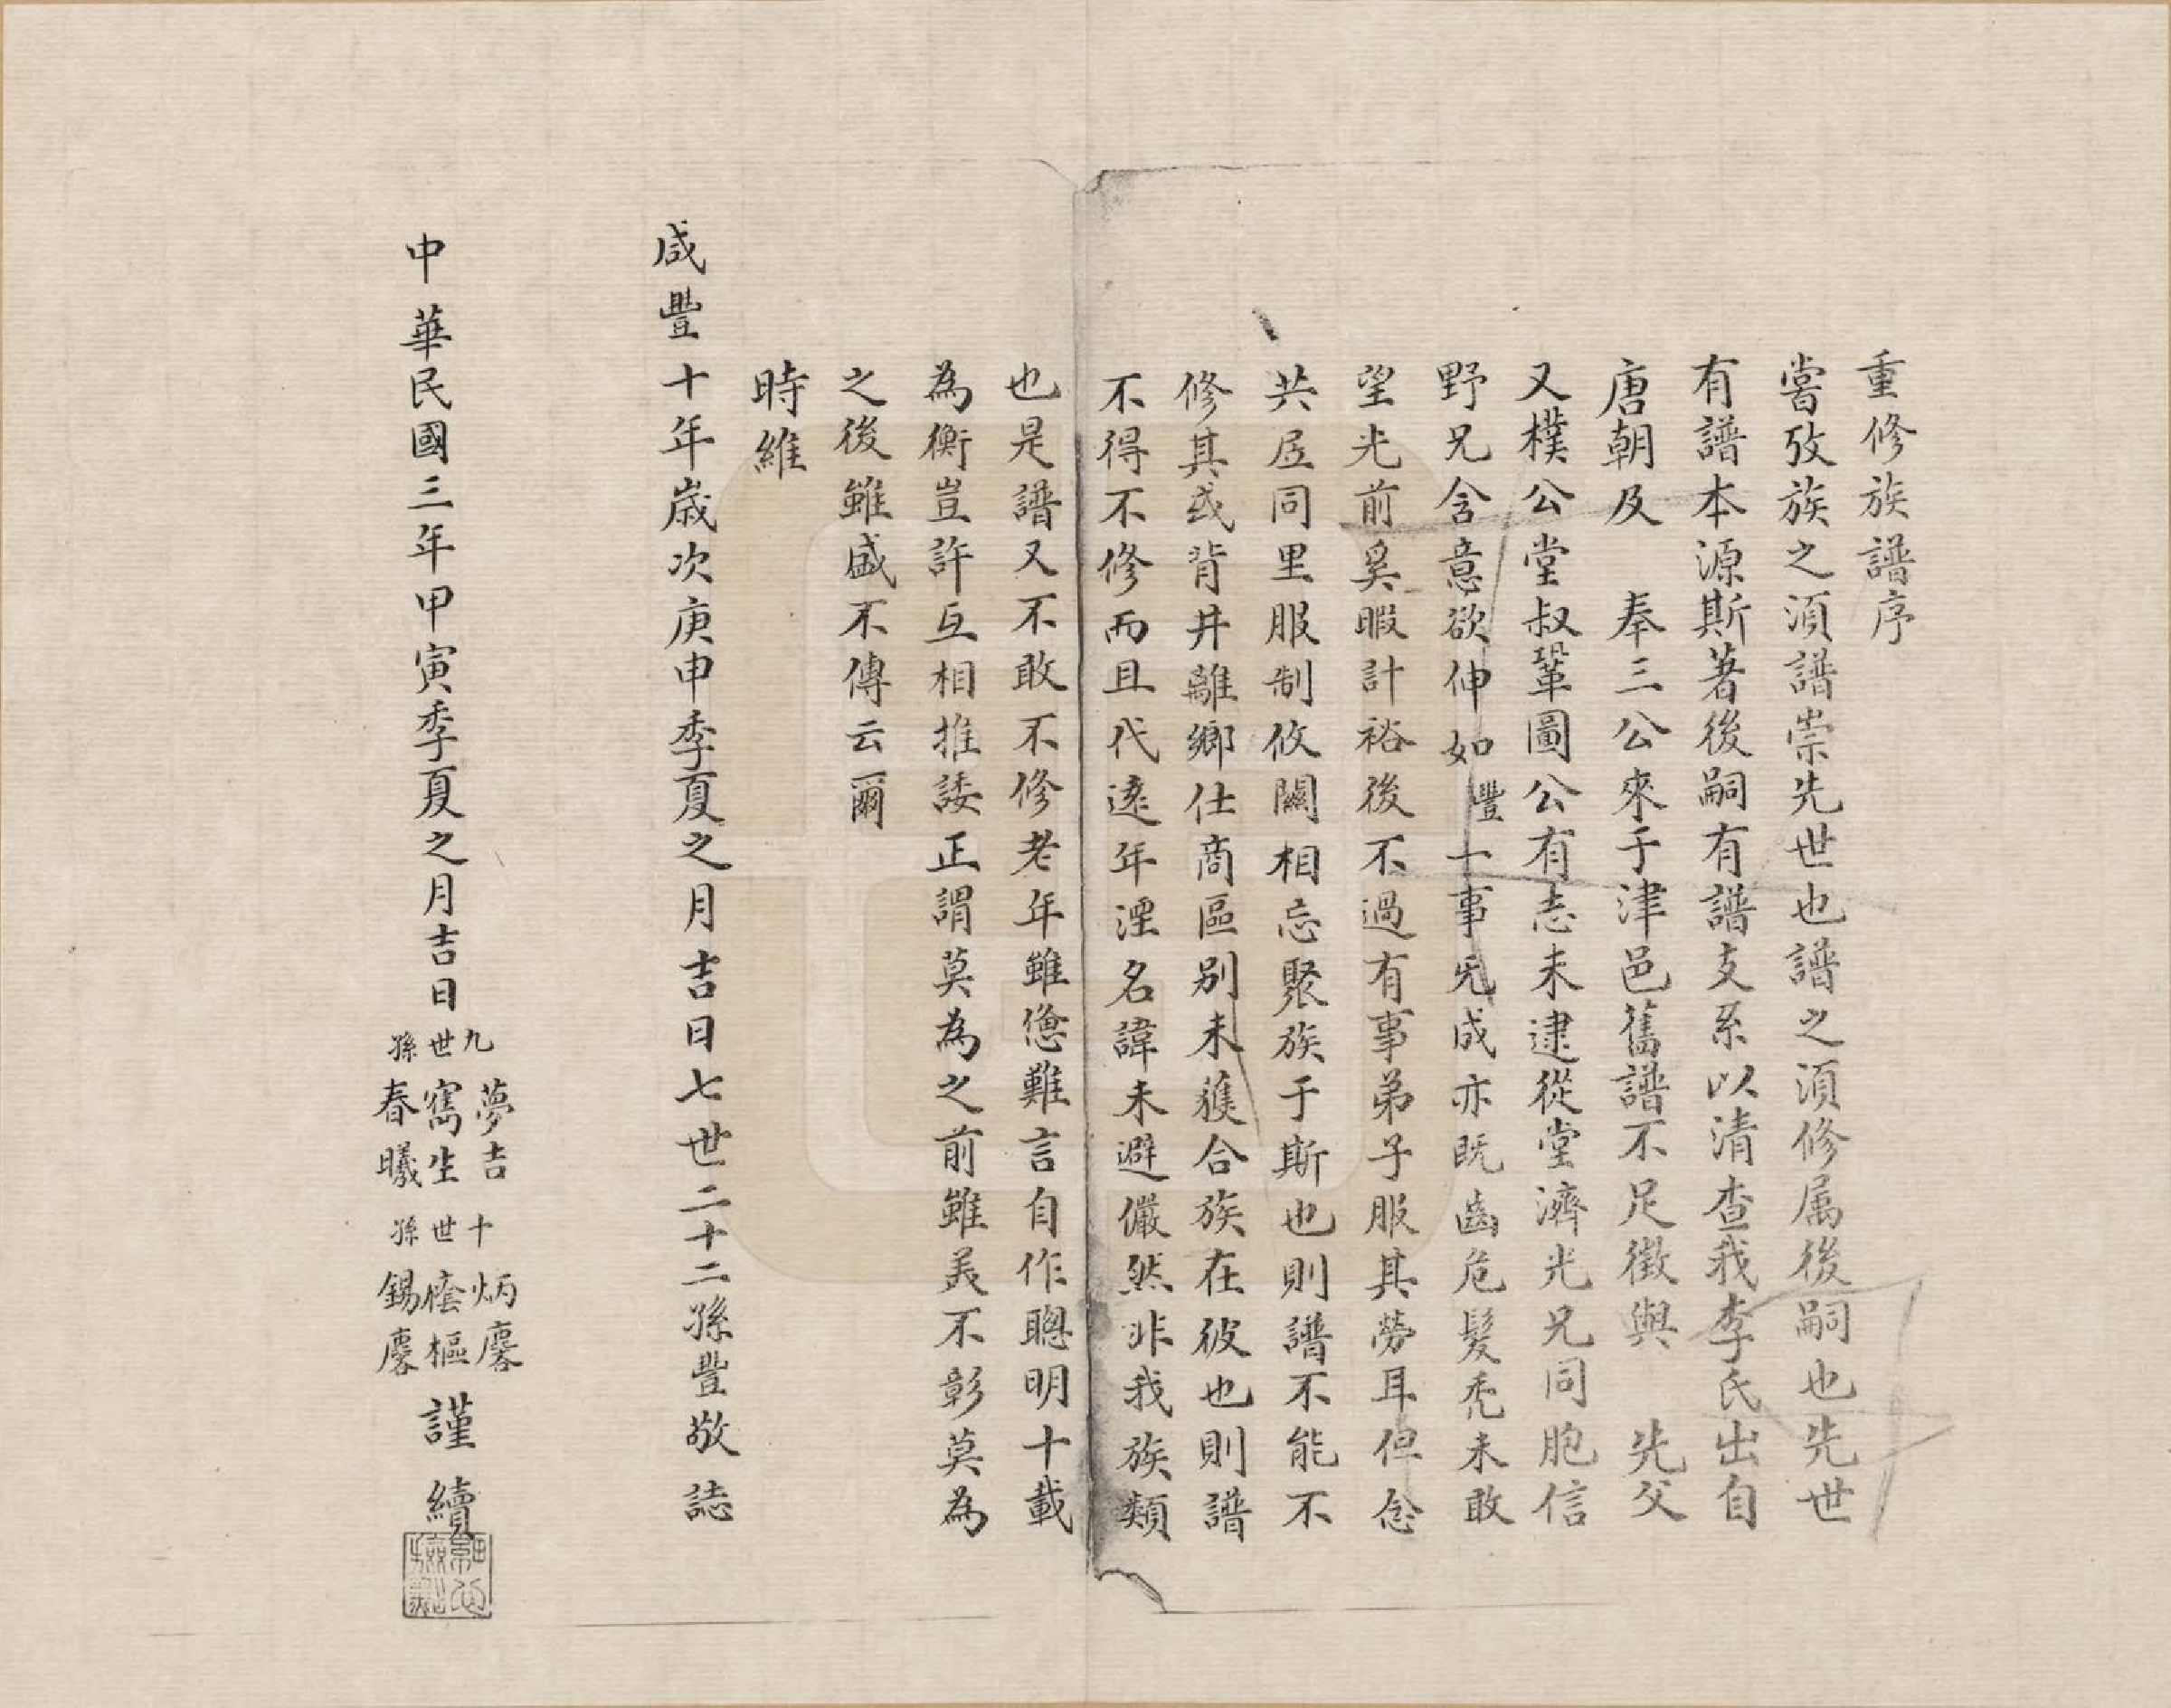 重修族譜序
嘗攷族之湏譜崇先世也譜之湏修属後嗣也先世
有譜本源斯著後嗣有譜支系以清查我李氏出自
唐朝及 奉三公來于津邑舊譜不足徵與 先父
又樸公堂叔鞏圖公有志未逮從堂濟光兄同胞信
野兄含意欲伸如豐一事旡成亦既齒危髮禿未敢
望光前奚暇計裕後不過有事弟子服其勞耳但念
共居同里服制攸關相忘聚族于斯也則譜不能不
修其或背井離鄉仕商區别未獲合族在彼也則譜
不得不修而且代遠年湮名諱未避儼然非我族類
也是譜又不敢不修老年雖憊難言自作聰明十載
為衡豈許互相推諉正謂莫為之前雖美不彰莫為
之後雖盛不傳云爾
時維
咸豐十年歲次庚申季夏之月吉日七世二十二孫豐敬誌
中華民國三年甲寅季夏之月吉日九世孫夢吉寯生春曦十世孫炳麐樞錫麐謹續